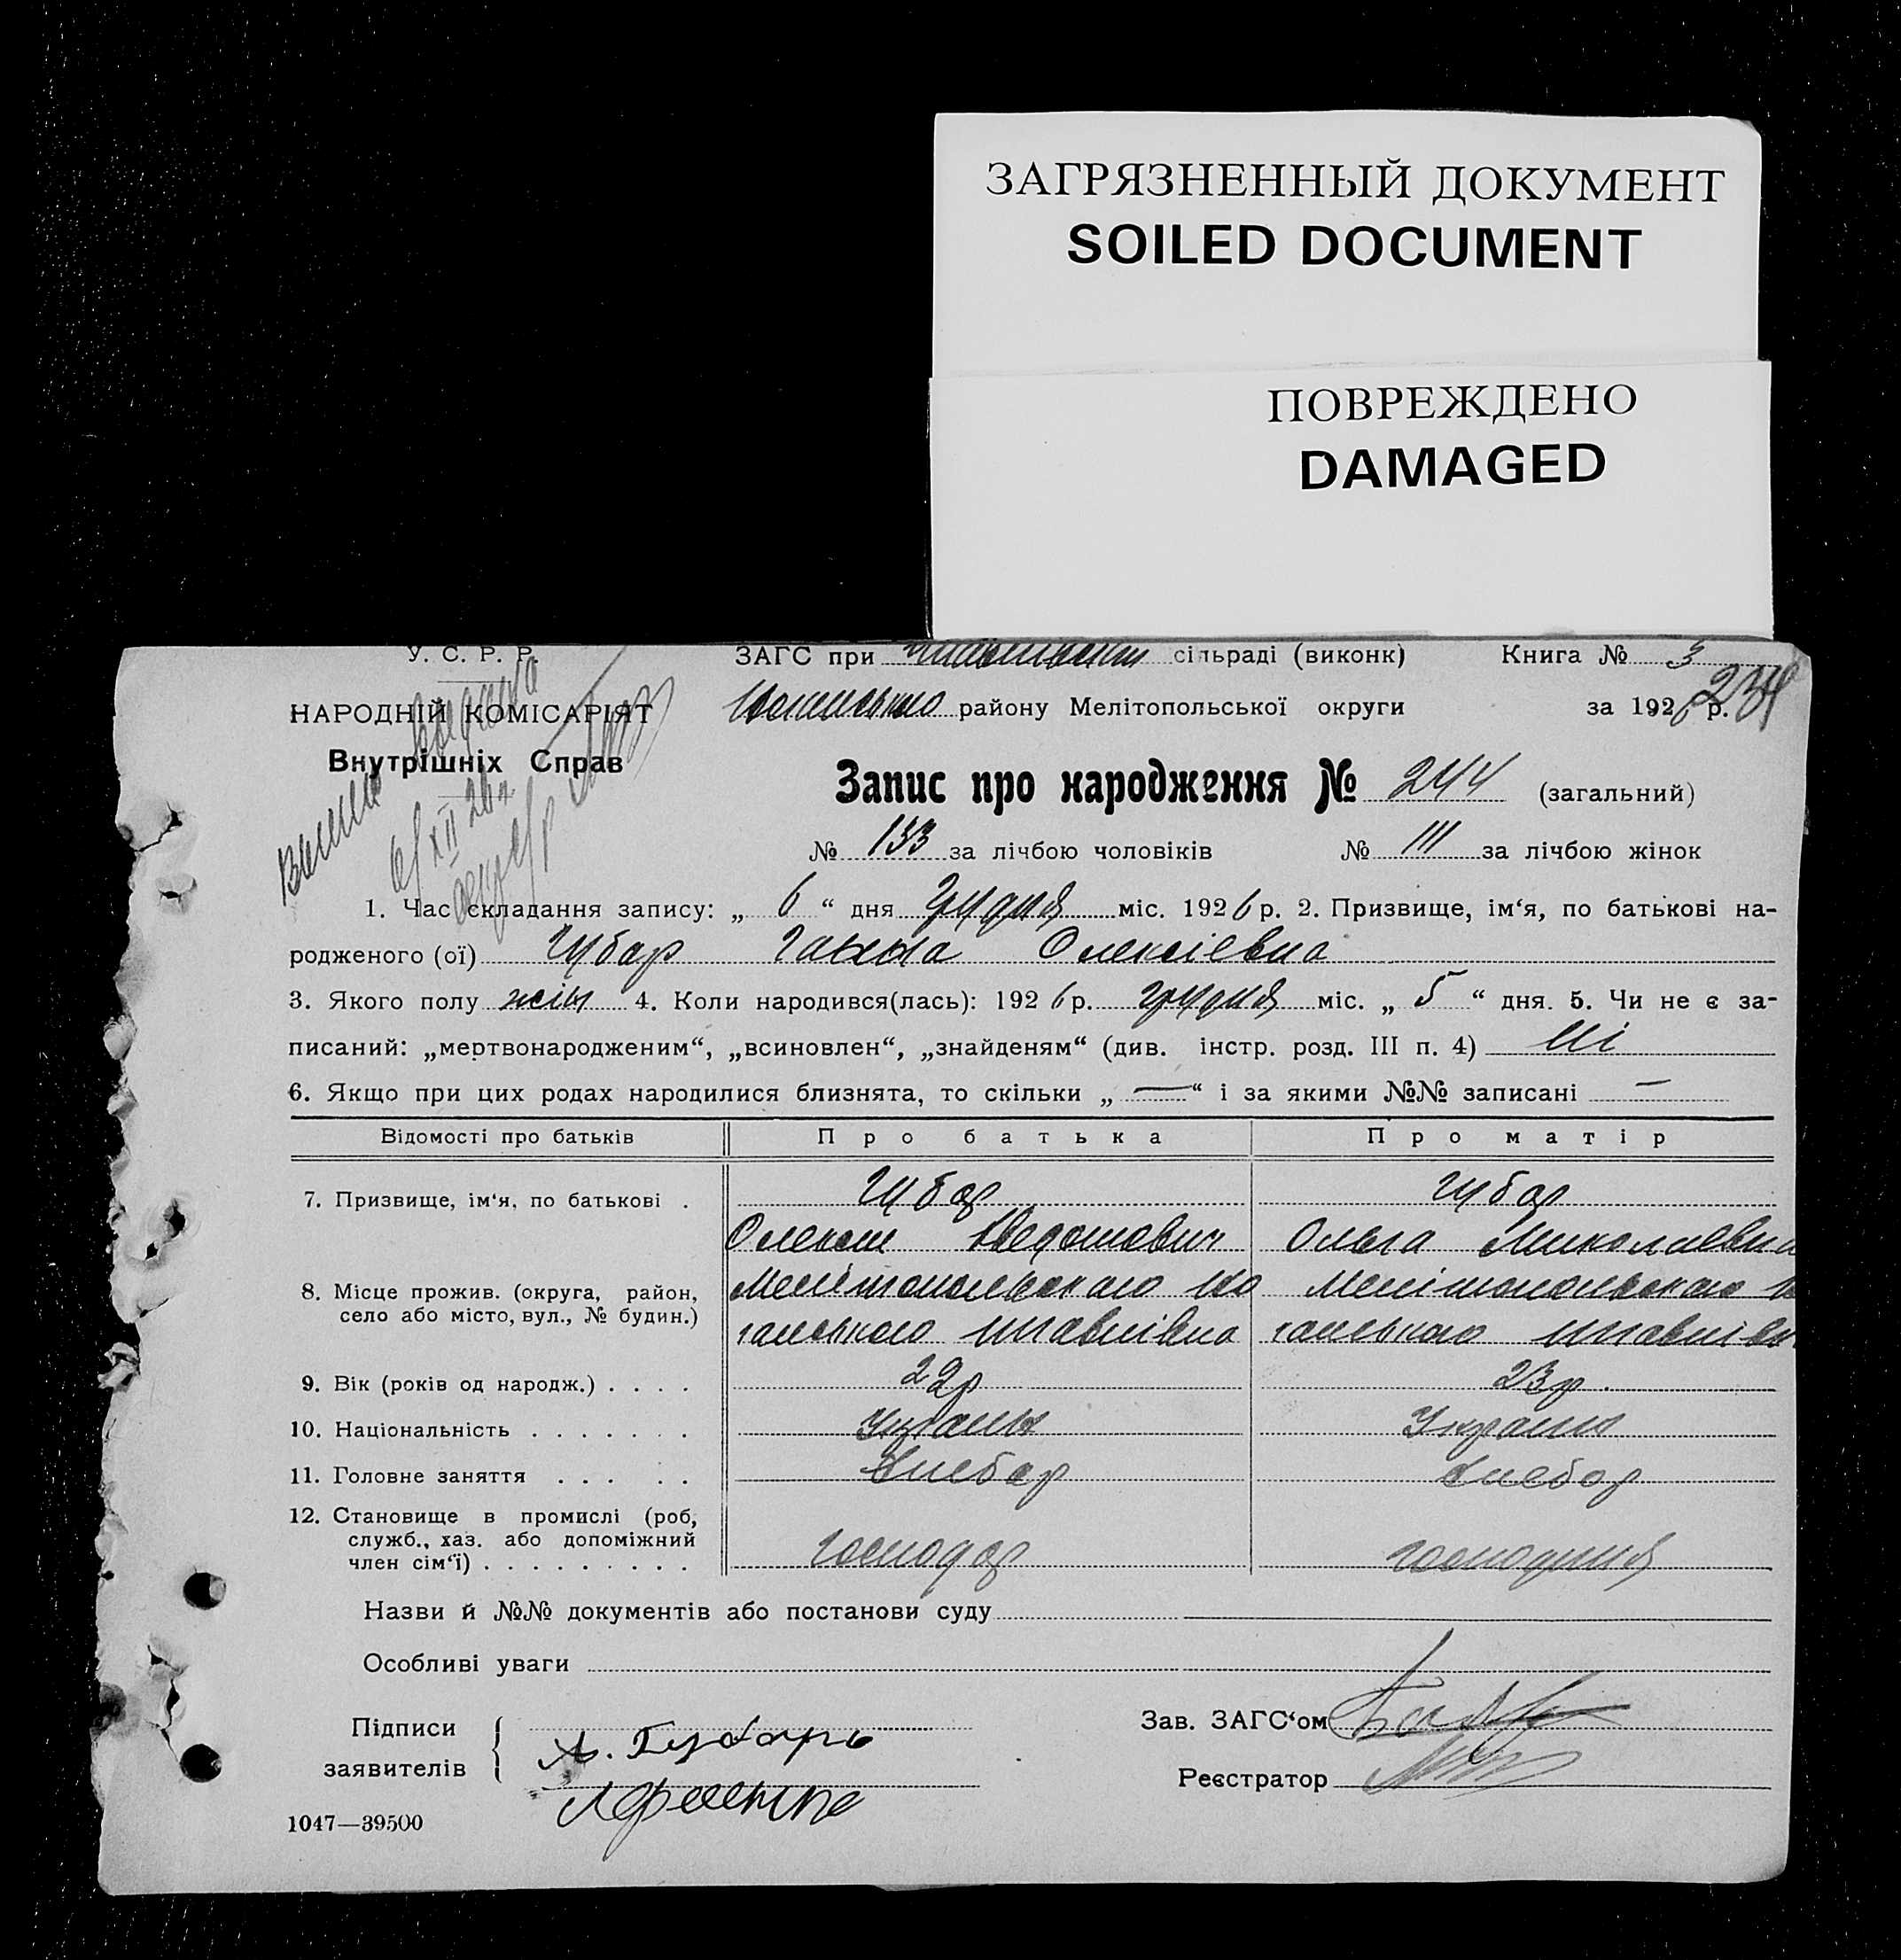 ЗАГРЯЗНЕННЫЙ ДОКУМЕНТ
SOILED DOCUMENT
ПОВРЕЖДЕНО
DAMAGED
У. С. Р. Р.
ЗАГС при сільраді (виконк) Книга № 3
234
НАРОДНІЙ КОМІСАРІЯТ
району Мелітопольської округи за 1926 р.
Внутрішніх Справ
Запис про народження № 244 (загальний)
№ 133 за лічбою чоловіків № 111 за лічбою жінок
6/XII 26 р
1. Час складання запису: „ 6 “ дня грудня міс. 1926 р. 2. Призвище, ім‘я, по батькові на-
родженого (ої) Губар Ганна Олексіевна
3. Якого полу жін 4. Коли народився(лась): 1926 р. грудня міс. „ 5 “ дня. 5. Чи не є за-
писаний: „мертвонародженим“, „всиновлен“, „знайденям“ (див. інстр. розд. III п. 4) Ні
6. Якщо при цих родах народилися близнята, то скільки „ — “ і за якими №№ записані —
Відомості про батьків Про батька Про матір
7. Призвище, ім‘я, по батькові . Губар Губар
Олексій Федотович Ольга Миколаевна
8. Місце прожив. (округа, район, Мелітопольского Мелітопольского
село або місто, вул., № будин.)
9. Вік (років од народж.) . . . . 22р 23р.
10. Національність . . . . . . . Украин Украин
11. Головне заняття . . . . . Хлебор Хлебор
12. Становище в промислі (роб,
служб., хаз. або допоміжний
член сім‘ї) . . . . . . . . . Господар господиня
Назви й №№ документів або постанови суду
Особливі уваги
Підписи
заявителів
А. Губарь
Зав. ЗАГС‘ом
Реєстратор
1047—39500